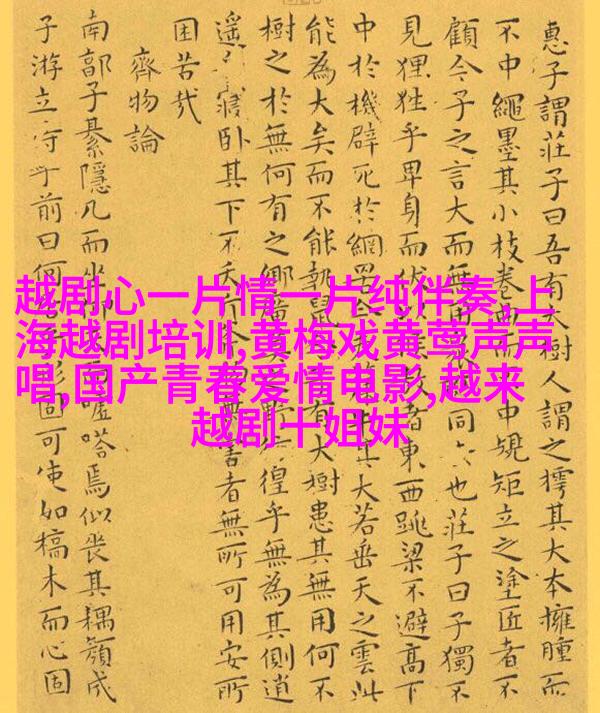 越剧心一片情一片纯伴奏,上
海越剧培训,黄梅戏黄莺声声
唱,国产青春爱情电影,越来
越剧十姐妹
惠子謂莊子曰吾有大人謂之樗其大本擁腫而
不中繩墨其小枝卷曲而中規矩立之塗匠者不
顧今子之言大而無用同也莊子曰子獨不
見狸狌乎卑身而伏者東西跳梁不避高下
中於機辟死於網罟其大若垂天之雲此
能為大矣而不能執鼠大樹患其無用何不
樹之於無何有之鄉廣徨乎無為其側逍
遙寢卧其下不夭害者無所可用安所
困苦哉
齊物論
南郭子綦隱几而坐噓嗒焉似喪其耦顏成
子游立侍乎前曰何形固可使如槁木而心固